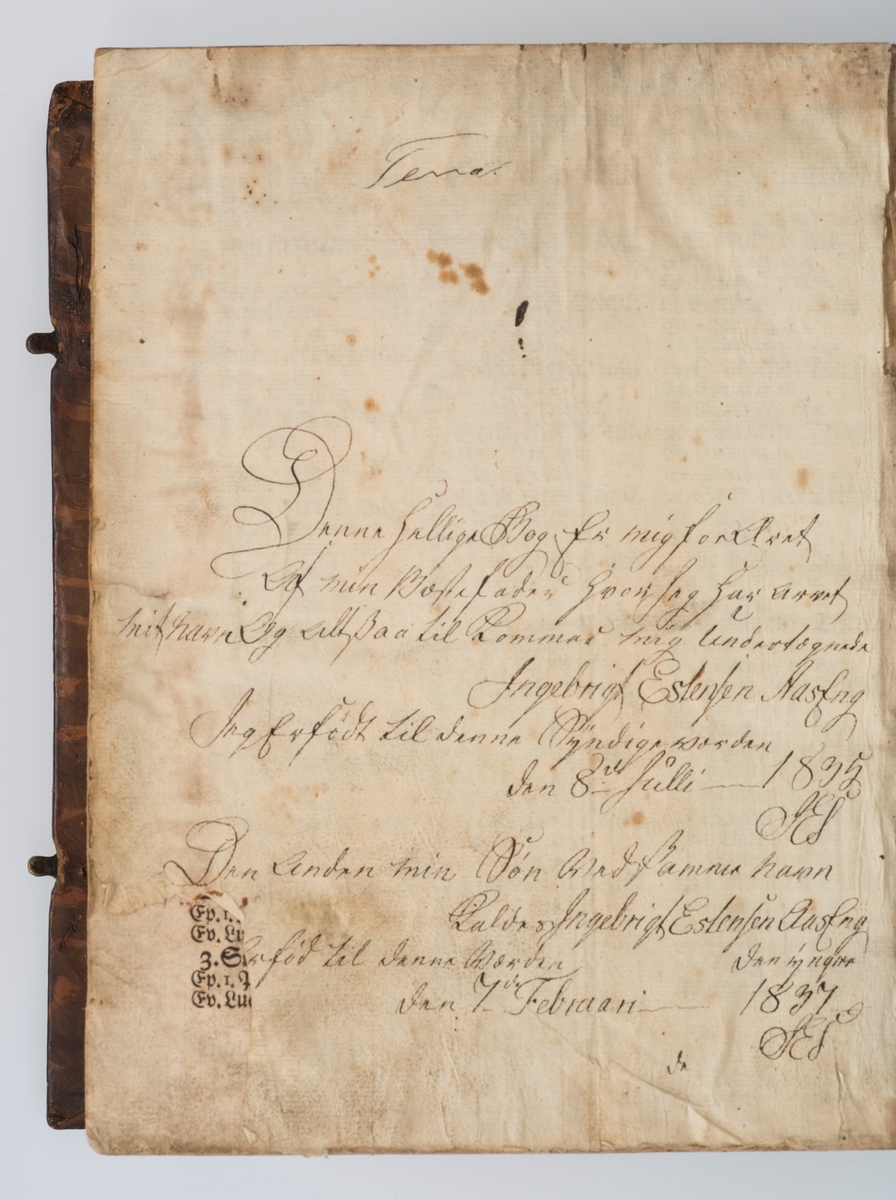 Denne hellige Bog Er mig forÆret
Af min Bæstefader hvor Jeg har arvet
mit Navn Og altsaa til Kommer mig Undertægnede
Ingebrigt Estensen AasEng
Jeg Er födt til denne Syndige værden
den 8de Julli 1835
IES
Den Anden min Søn Ved samme navn
Kaldes Ingebrigt Estensen AasEng
Ep. 1.
Ev. Lu
3. S
Er föd til denne Værden den yngre
Ep. 1.
Ev. Luc
den 7de Februari 1837
IES
de